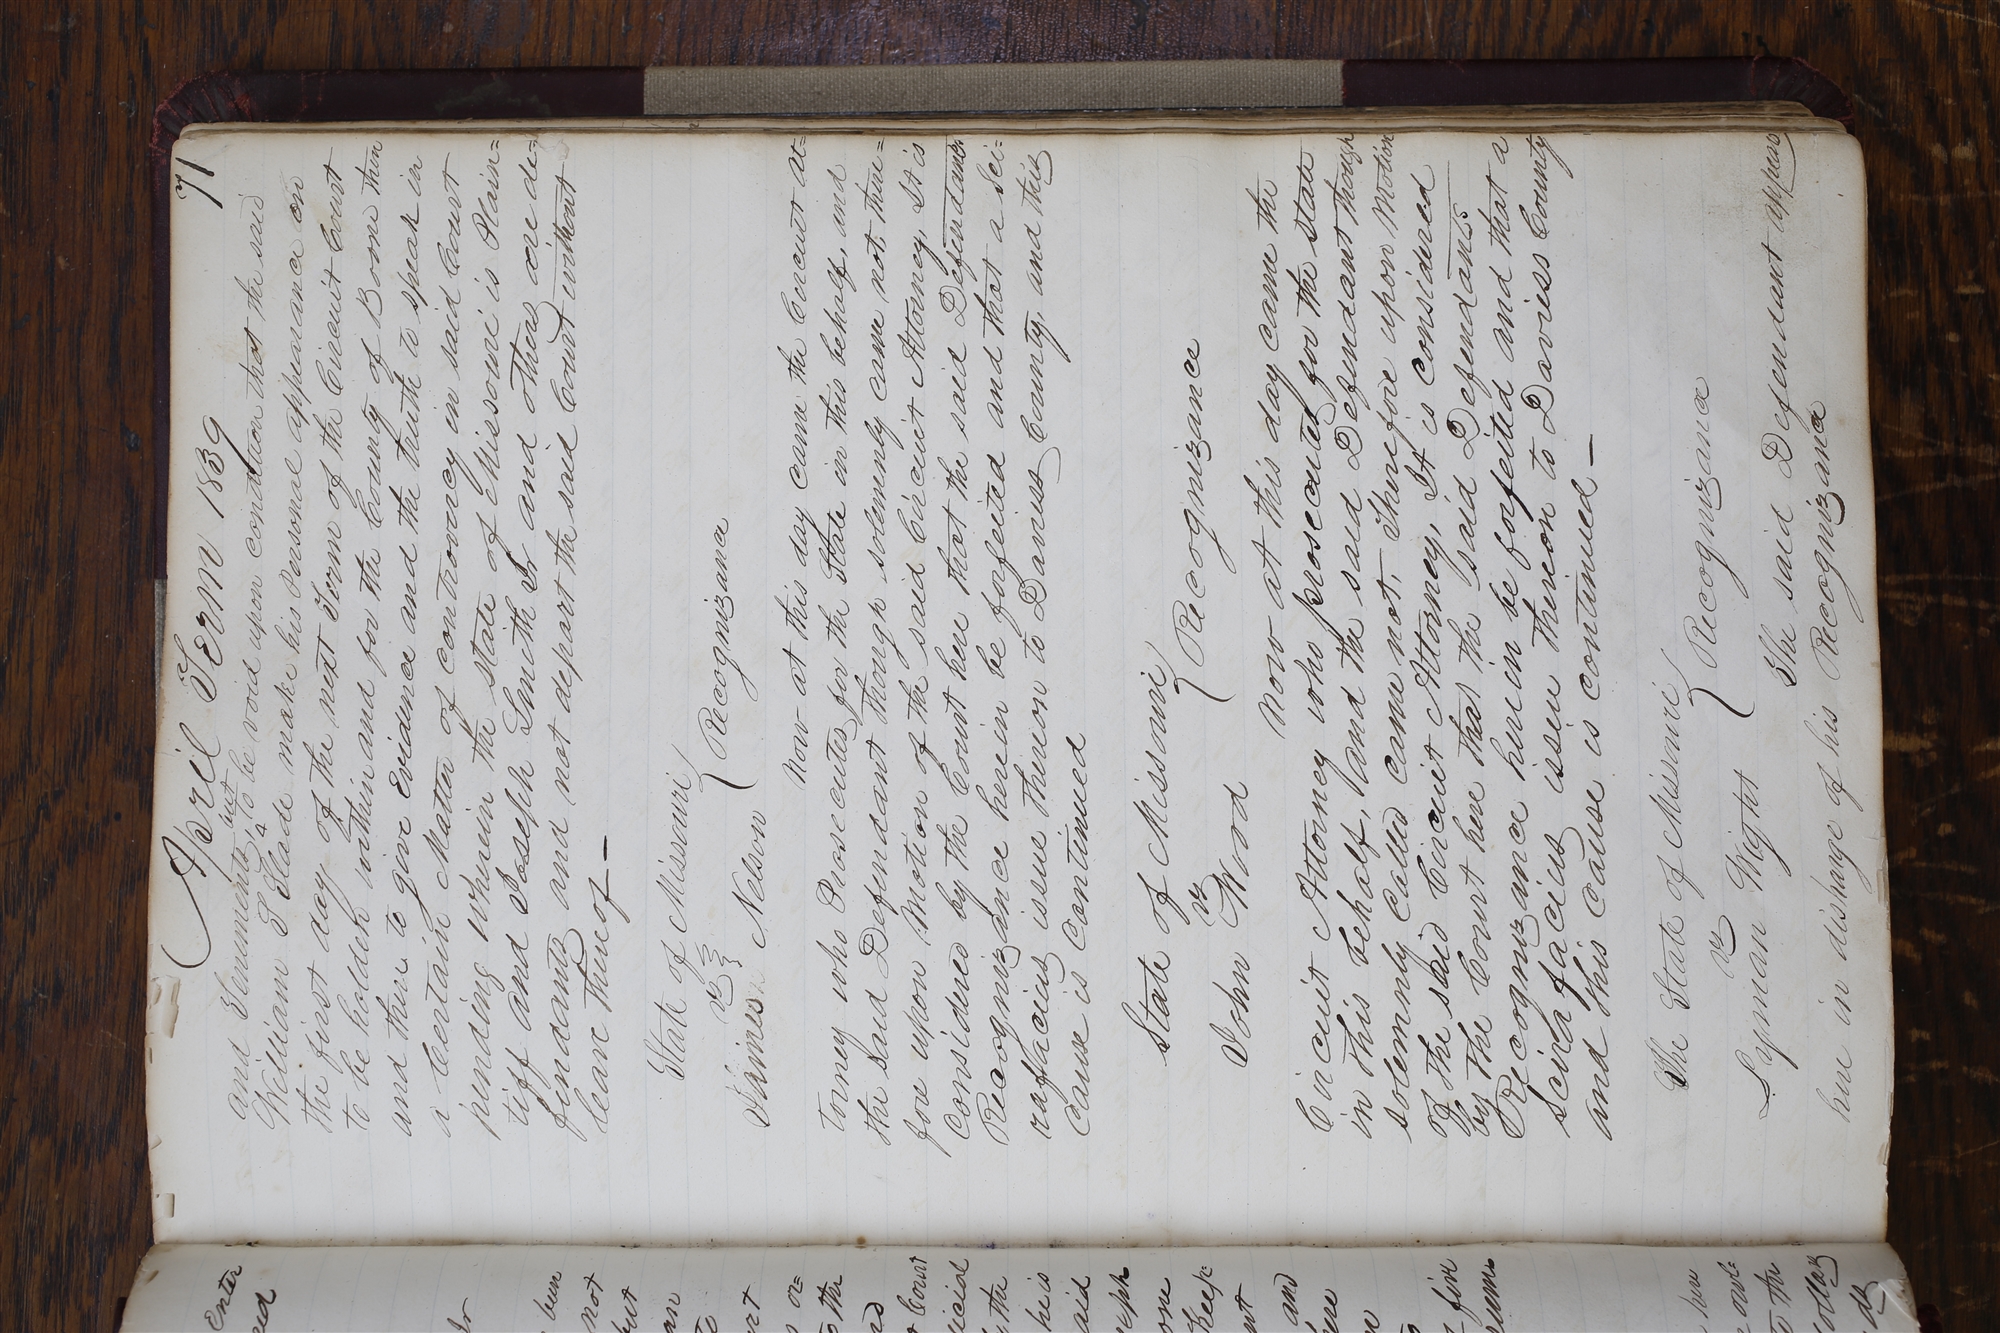 April Term 1839 71
and Tenements but to be void upon condition that the said
William T Slade make his Personal appearance on
the first day of the next Term of the Circuit Court
to be holden within and for the County of Boone then
and there to give evidence and the truth to speak in
a certain Matter of controversy in said Court
pending wherein the state of Missouri is Plain=
tiff and Joseph Smith Jr and others are de=
fendants and not depart the said Court without
leave thereof —
State of Missouri
vs Recognizance
James Nelson
Now at this day came the Circuit At=
torney who Prosecutes for the State in this behalf, and
the said Defendant though solemnly came not, there=
fore upon Motion of the said Circuit Attorney, It is
Considered by the Court here that the said Defendants
Recognizance herein be forfeited and that a Sci=
rafacias issue thereon to Daviess County, and this
cause is Continued
State of Missouri
vs Recognizance
John Wood
Now at this day came the
Circuit Attorney who prosecutes for the State
in this behalf, and the said Defendant though
solemnly Called came not, Therefore upon Motion
of the said Circuit Attorney, It is considered
by the Court here that the said Defendants
Recognizance herein be forfeited and that a
scira facias issue thereon to Daviess County
and this cause is continued —
The State of Missouri
vs Recognizance
Lyman Wight
The said Defendant appears
here in discharge of his Recognizance
Enter
been
not
but
or=
to the
Court
the
his
said
one
Keep=
and
fine
here
to the